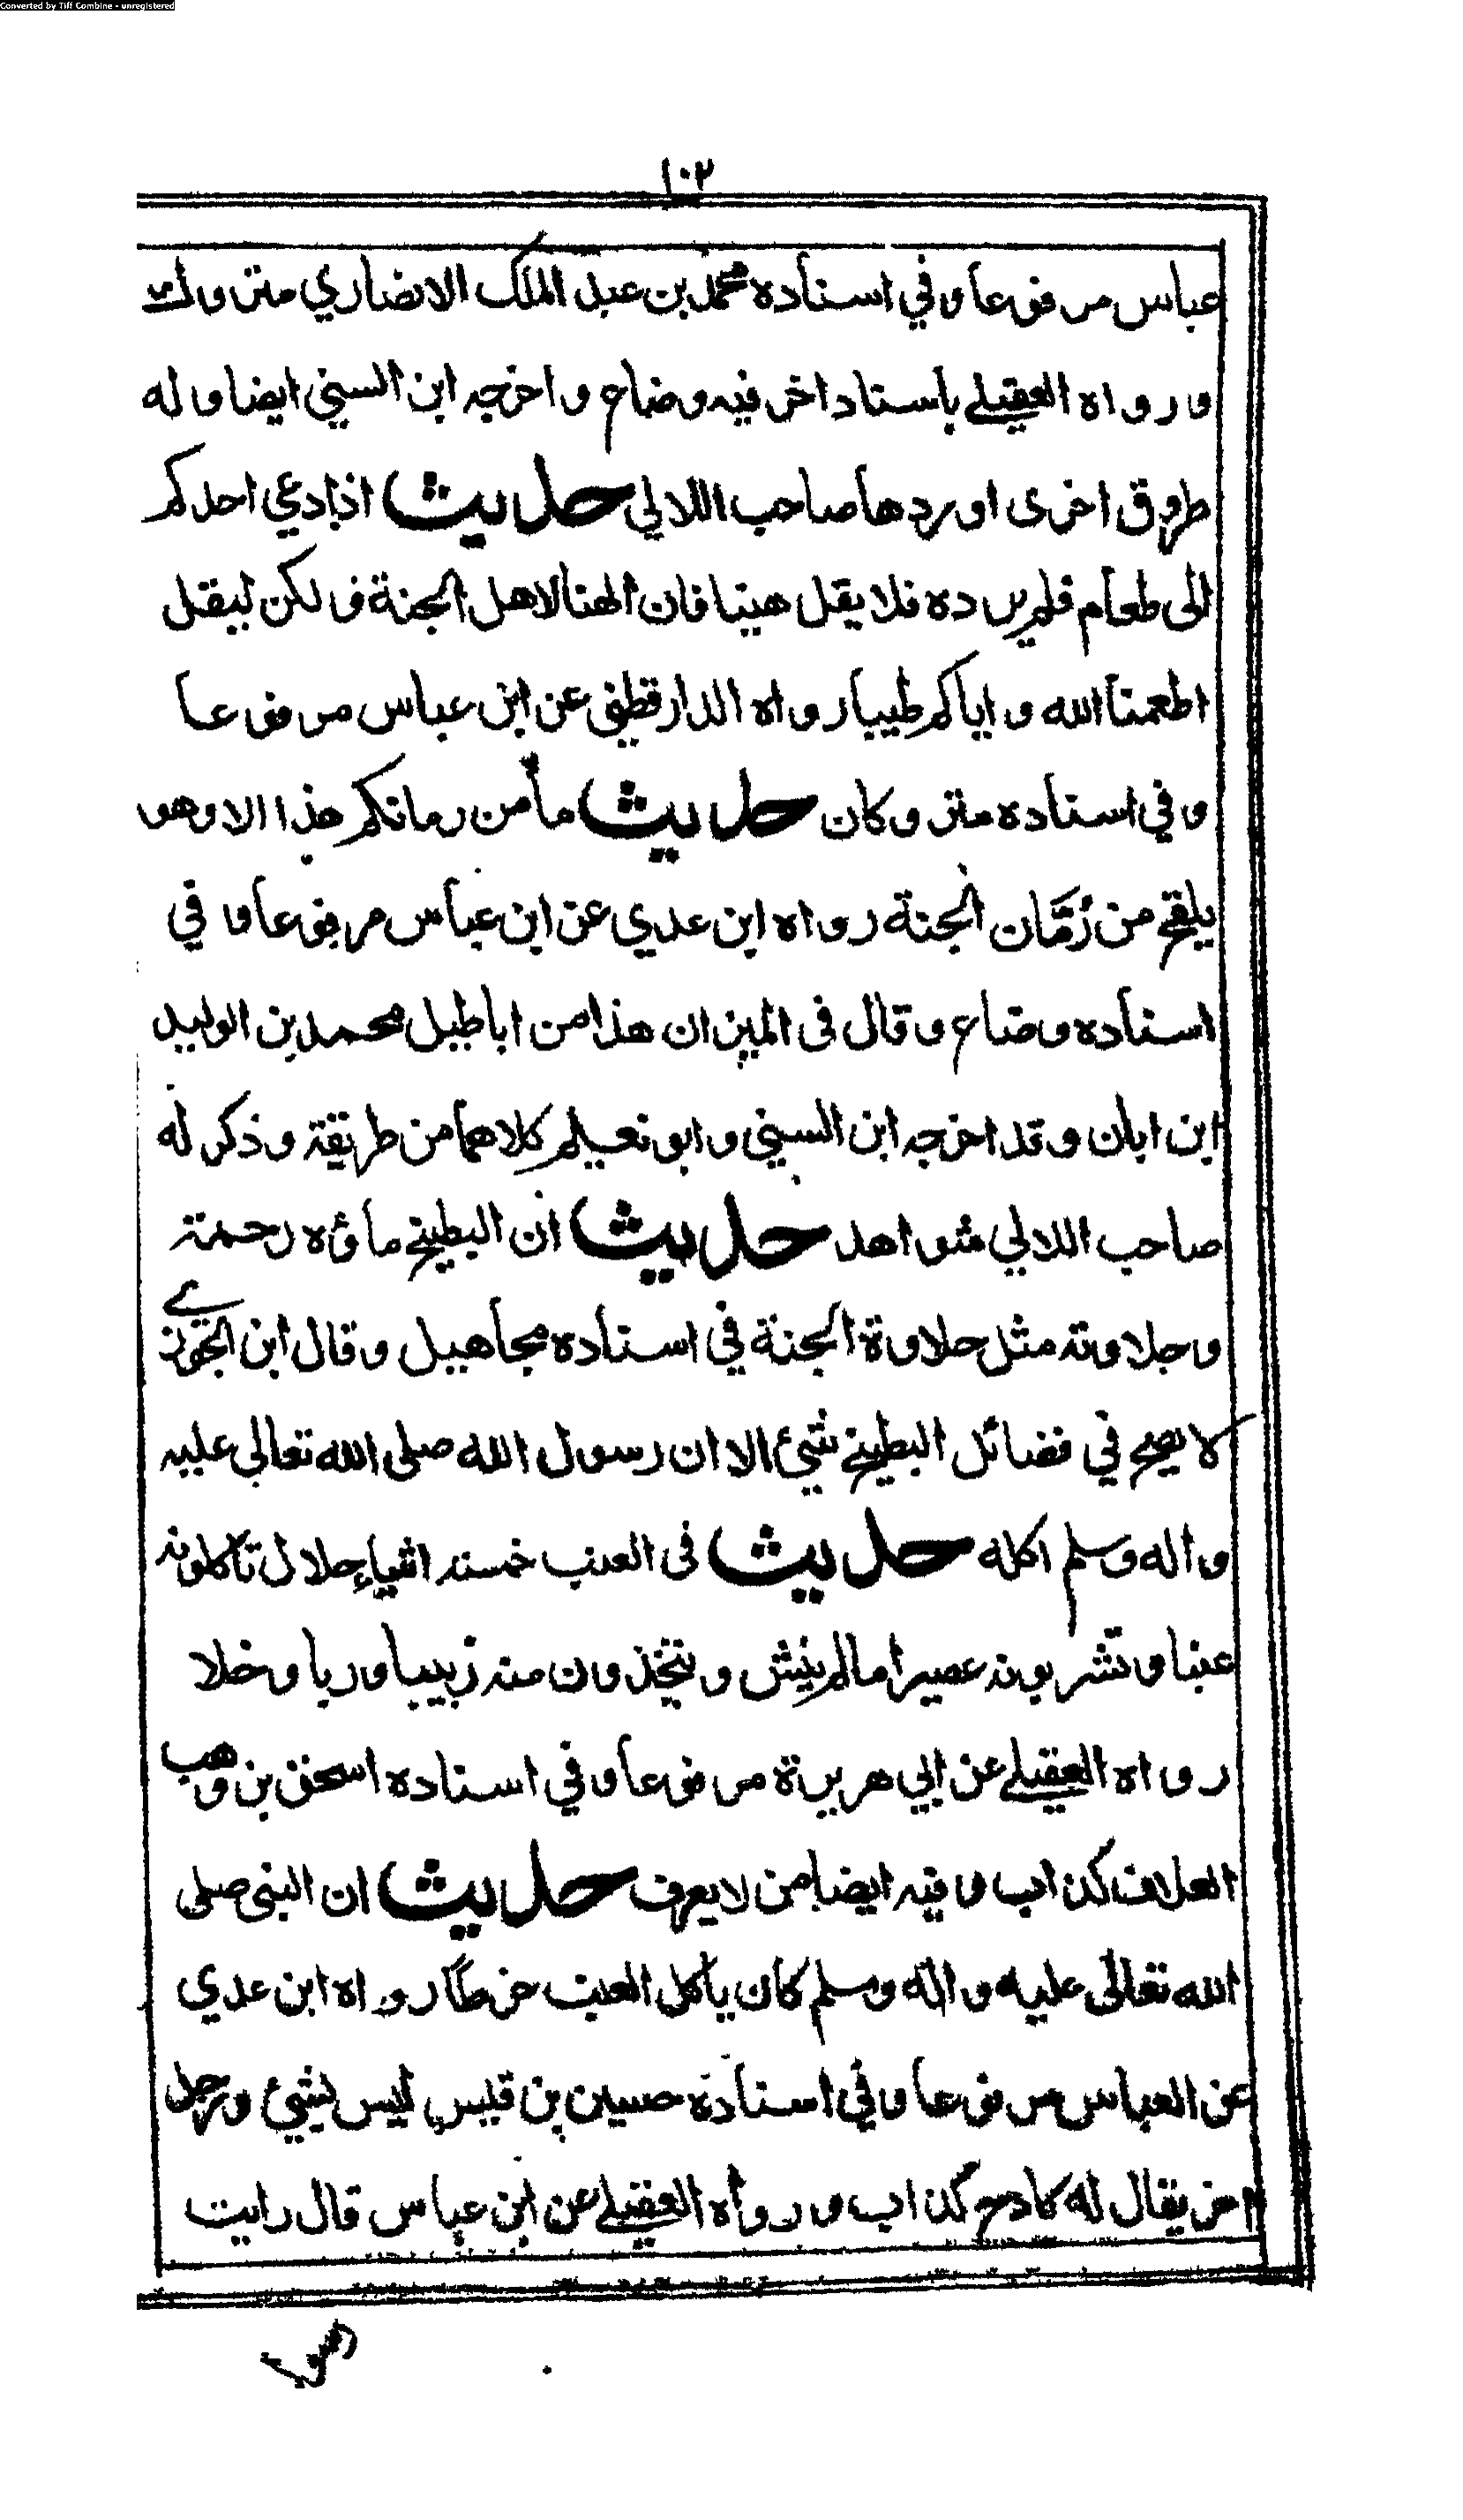 Converted by Tiff Combine - unregistered
١٠٢
عباس مرفوعا وفي اسناده محمد بن عبد الملك الانصاري متروك
ورواه العقيلي باسناد اخر فيه وضاع واخرجه ابن السني ايضا وله
طروق اخرى اوردها صاحب اللالي حديث اذا دعي احدكم
الى طعام فلم يرده فلا يقل هنيا فان الهنا لاهل الجنة ولكن ليقل
اطعمنا الله واياكم طيبا رواه الدارقطني عن ابن عباس مرفوعا
وفي اسناده متروكان حديث ما من رمانكم هذا الا وهو
يلقح من رُمَّان الجنة رواه ابن عدي عن ابن عباس مرفوعا وفي
اسناده وضاع وقال في الميزان هذا من اباطيل محمد بن الوليد
ابن ابان وقد اخرجه ابن السني وابو نعيم كلاهما من طريقة وذكر له
صاحب اللالي شواهد حديث ان البطيخ ماؤه رحمة
وحلاوته مثل حلاوة الجنة في اسناده مجاهيل وقال ابن الجوزي
لا يصح في فضائل البطيخ شئ الا ان رسول الله صلى الله تعالى عليه
واله وسلم اكله حديث في العنب خمسة اشياء حلال تاكلونه
عنبا وتشربونه عصيرا ما لم ينش وتتخذون منه زبيبا وربا وخلا
رواه العقيلي عن ابي هريرة مرفوعا وفي اسناده اسحق بن وهب
العلاف كذاب وفيه ايضا من لا يعرف حديث ان النبى صلى
الله تعالى عليه واله وسلم كان ياكل العنب خرطا رواه ابن عدي
عن العباس مرفوعا وفي اسناده حسين بن قيس ليس بشئ ورجل
اخر يقال له كادح كذاب ورواه العقيلي عن ابن عباس قال رايت